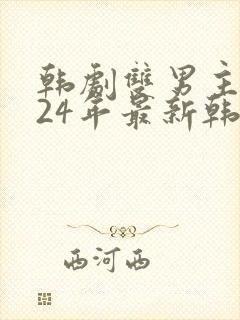 韩劇雙男主
24年最新韩
西河西